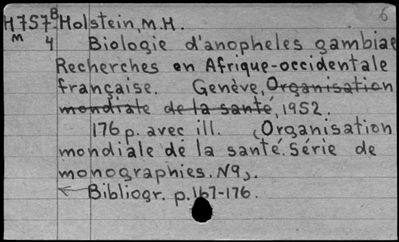 6
H757B Holstein, M.H.
m 4 Biologie d'anopheles gambiae
Recherches en Afrique-occidentale
française. Genève, Organisation
mondiale de la santé, 1952.
176 p. avec ill. (Organisation
mondiale de la santé. Série de
monographies. N9).
Bibliogr. p.167-176.